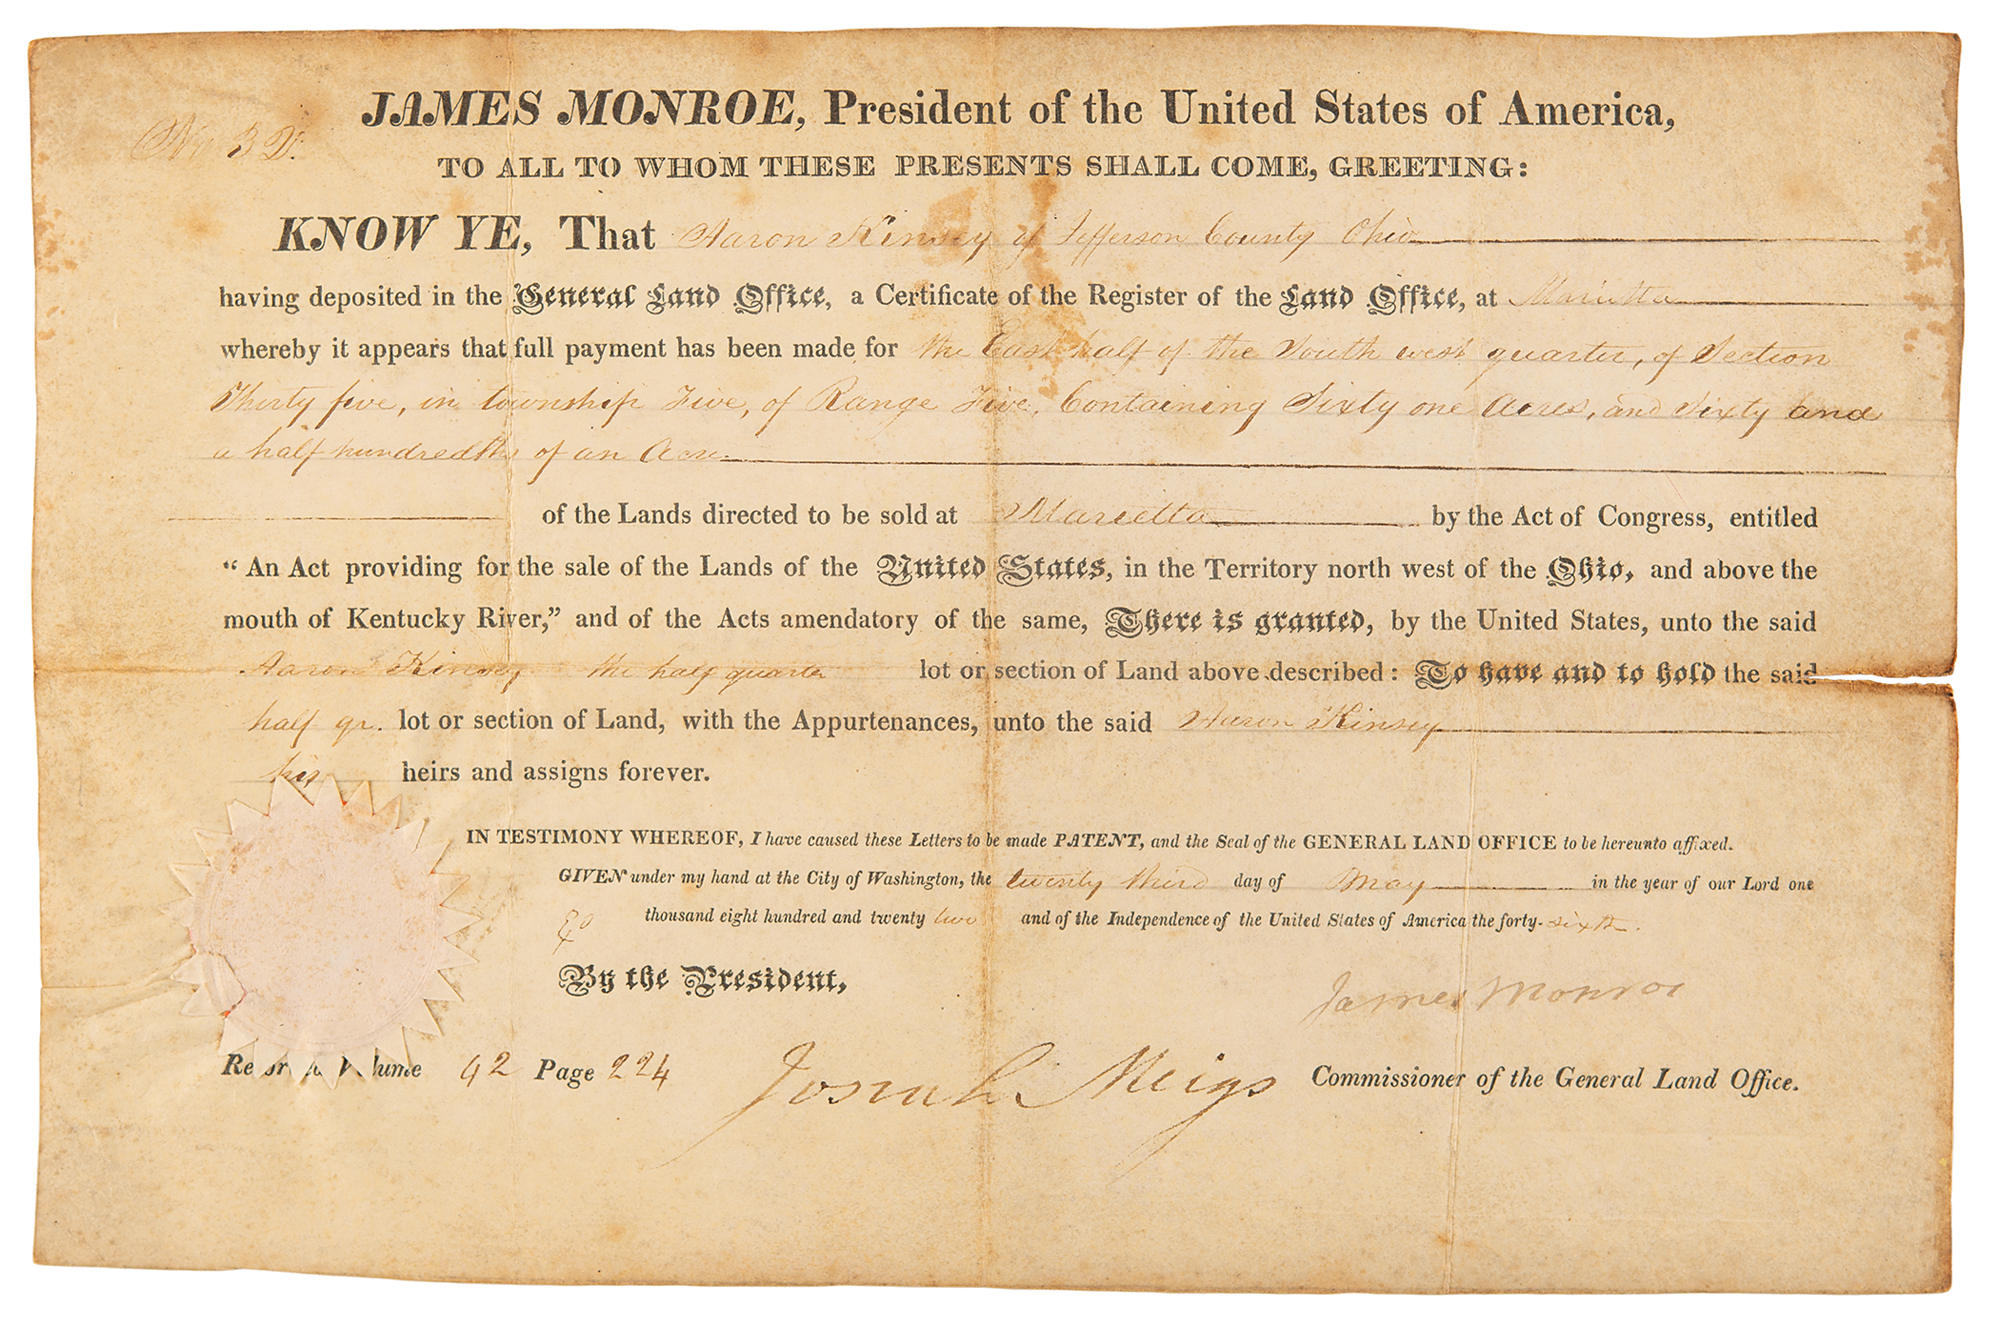 JAMES MONROE, President of the United States of America,
No. 3 D.
TO ALL TO WHOM THESE PRESENTS SHALL COME, GREETING:
KNOW YE, That Aaron Kinsey of Jefferson County Ohio
having deposited in the General Land Office, a Certificate of the Register of the Land Office, at Marietta
whereby it appears that full payment has been made for the East half of the South west quarter, of Section
Thirty five, in township Five, of Range Five, Containing Sixty one Acres, and Sixty and
a half hundredths of an Acre
of the Lands directed to be sold at Marietta by the Act of Congress, entitled
“An Act providing for the sale of the Lands of the United States, in the Territory north west of the Ohio, and above the
mouth of Kentucky River,” and of the Acts amendatory of the same, There is granted, by the United States, unto the said
Aaron Kinsey the half quarter lot or section of Land above described: To have and to hold the said
half qr. lot or section of Land, with the Appurtenances, unto the said Aaron Kinsey
his heirs and assigns forever.
IN TESTIMONY WHEREOF, I have caused these Letters to be made PATENT, and the Seal of the GENERAL LAND OFFICE to be hereunto affixed.
GIVEN under my hand at the City of Washington, the twenty third day of May in the year of our Lord one
thousand eight hundred and twenty two and of the Independence of the United States of America the forty-sixth.
By the President,
James Monroe
Volume 42 Page 224 Josiah Meigs Commissioner of the General Land Office.